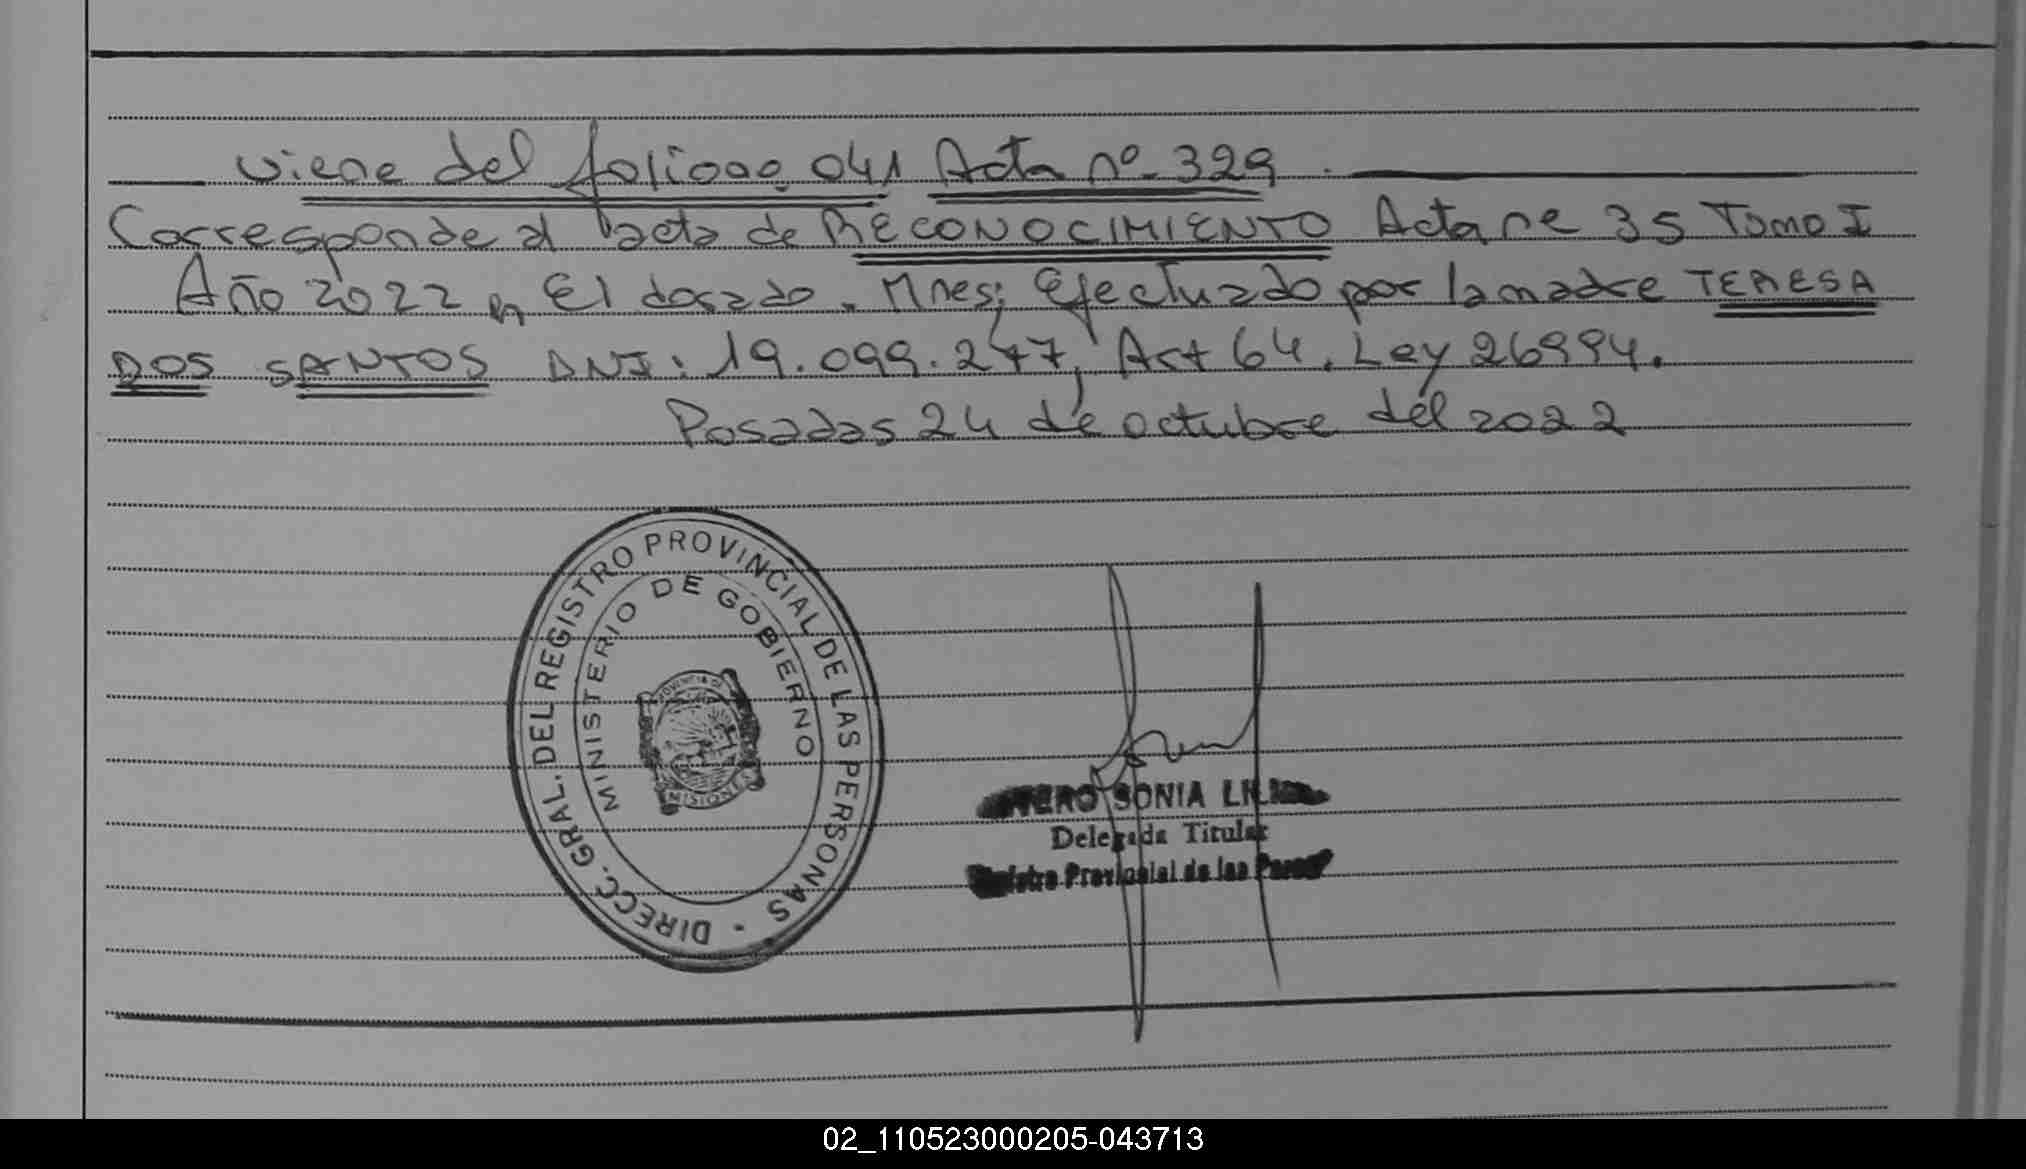 viene del folio 041 Acta nº 329.
Corresponde al acta de RECONOCIMIENTO Acta nº 35 Tomo I
Año 2022, Eldorado. Mnes; Efectuado por la madre TERESA
DOS SANTOS DNI: 19.099.247, Art 64. Ley 26994.
Posadas 24 de octubre del 2022
DIRECC. GRAL. DEL REGISTRO PROVINCIAL DE LAS PERSONAS -
MINISTERIO DE GOBIERNO
PROVINCIA DE
MISIONES
SONIA
Delegada Titular
Provincial de las
02_110523000205-043713